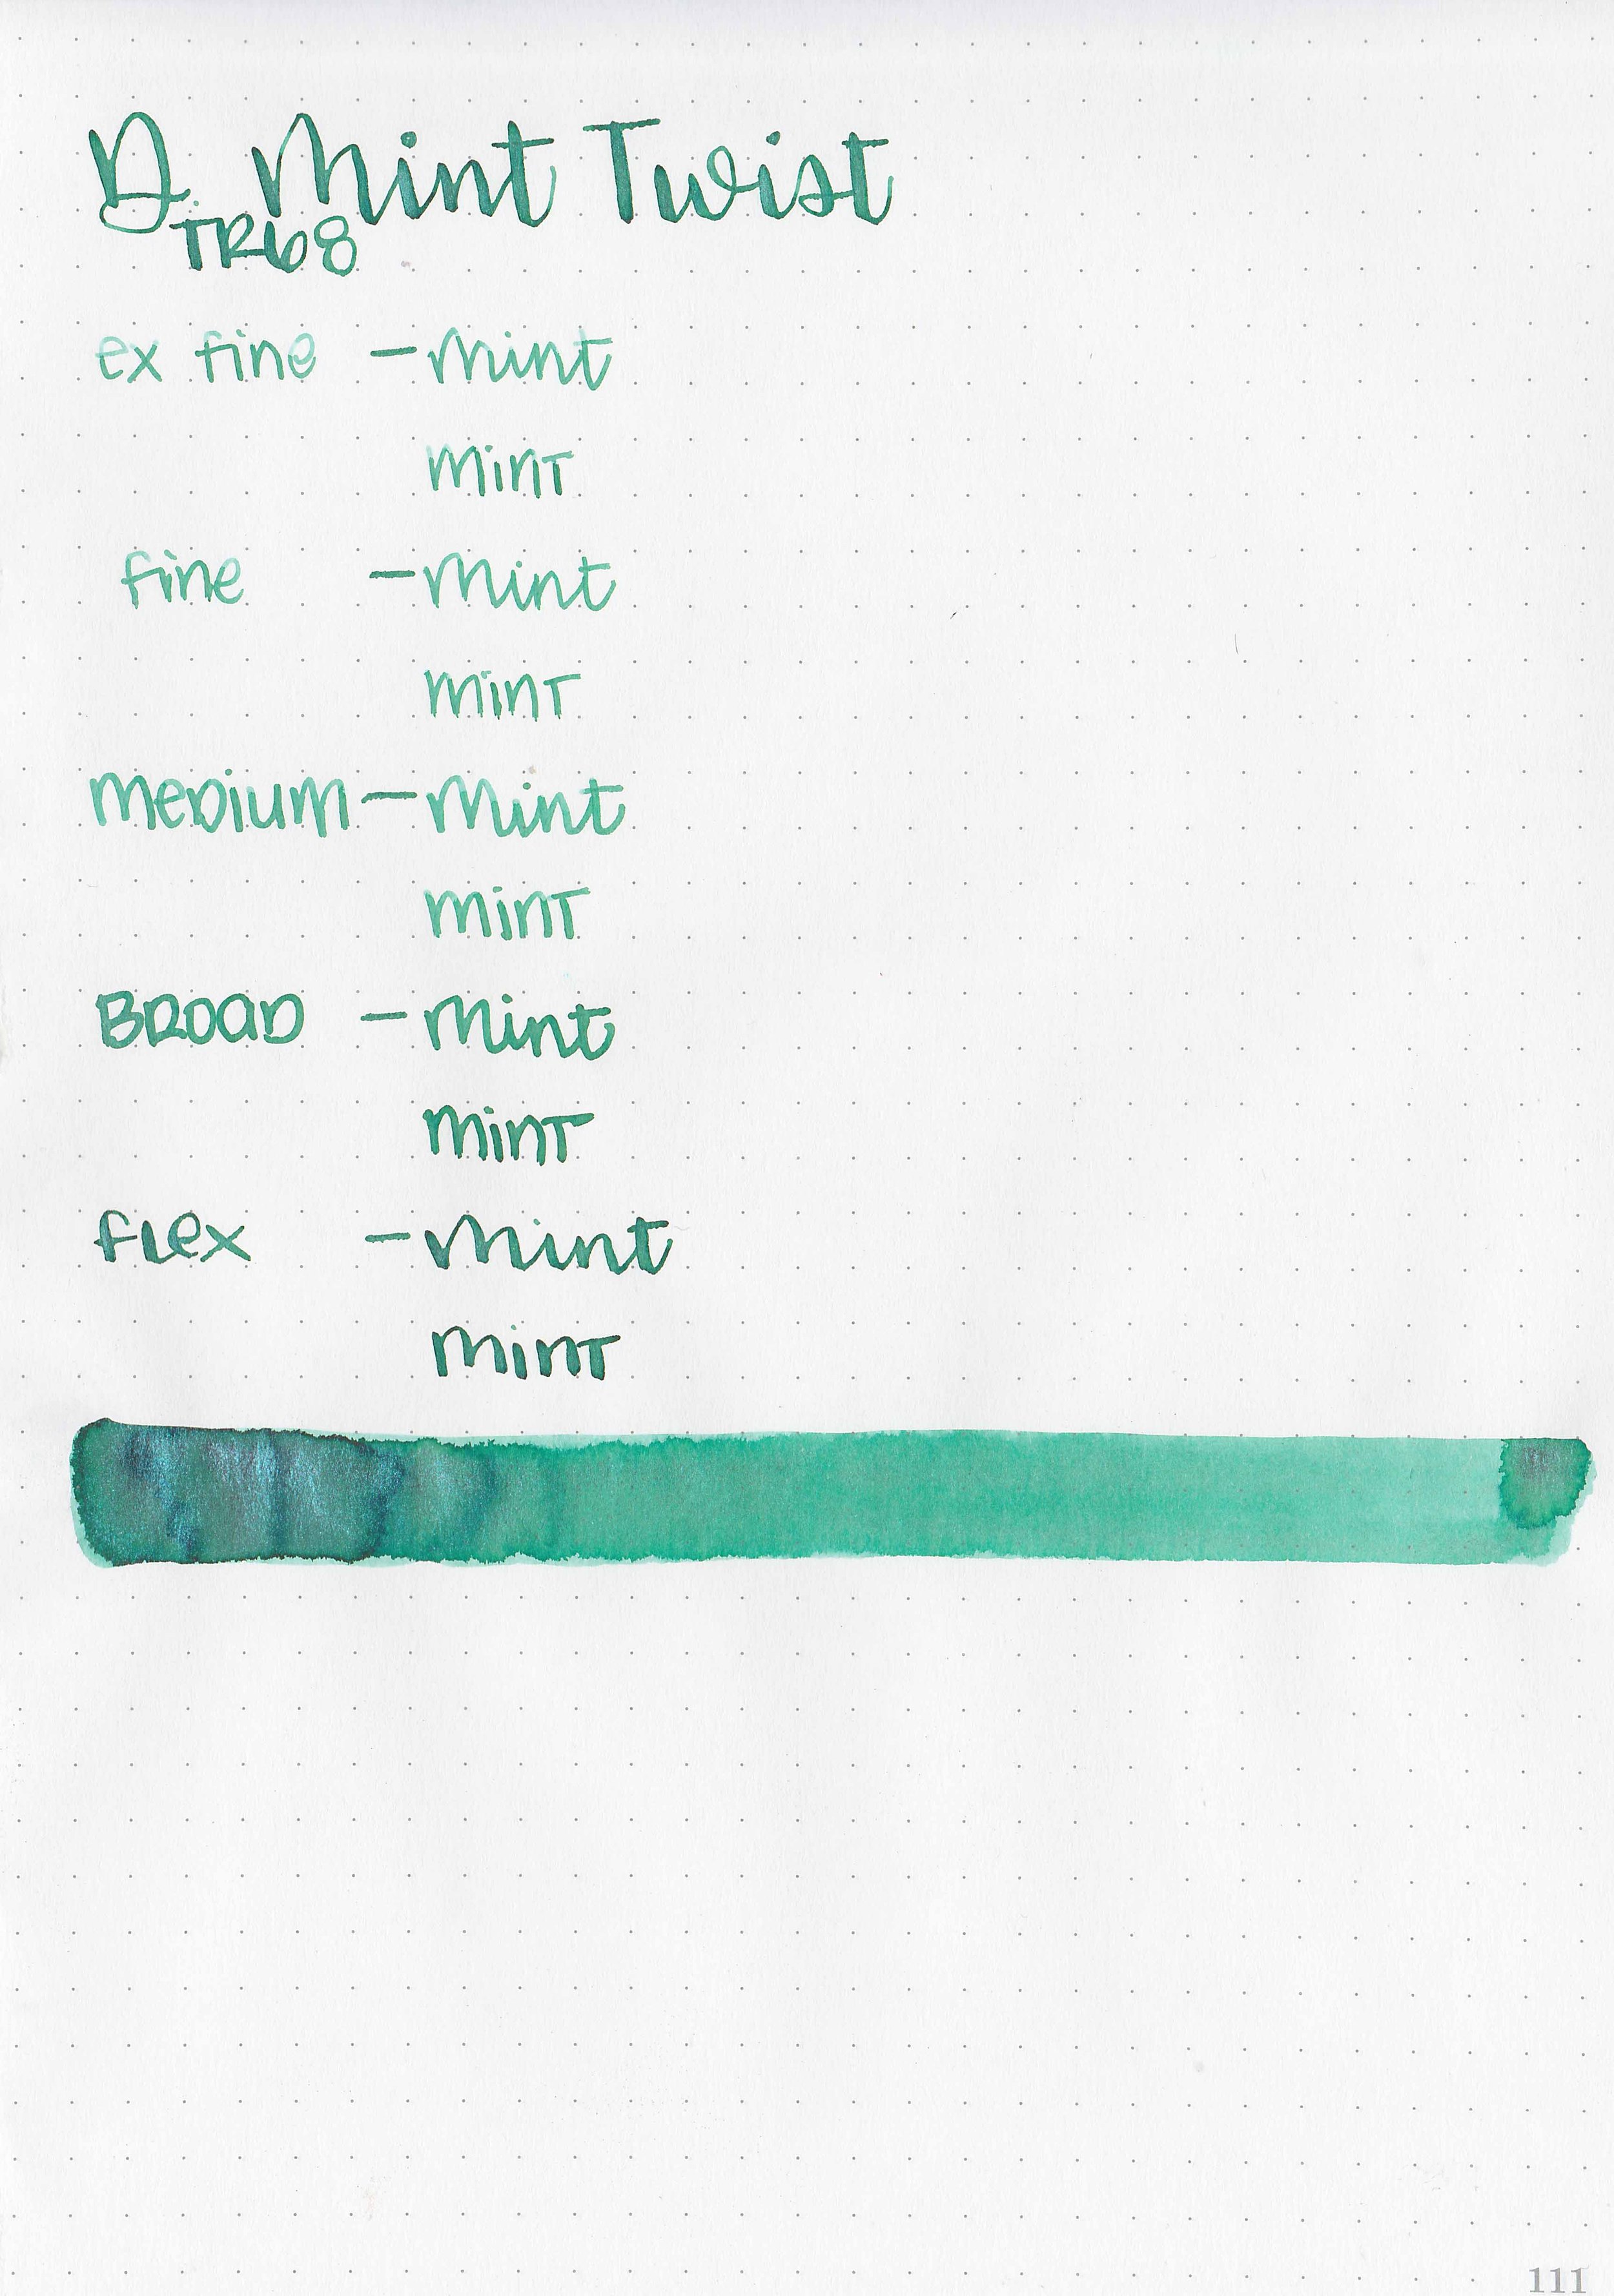 D. Mint Twist
TR68
ex fine - mint
mint
fine - mint
mint
medium - mint
mint
Broad - mint
mint
flex - mint
mint
111